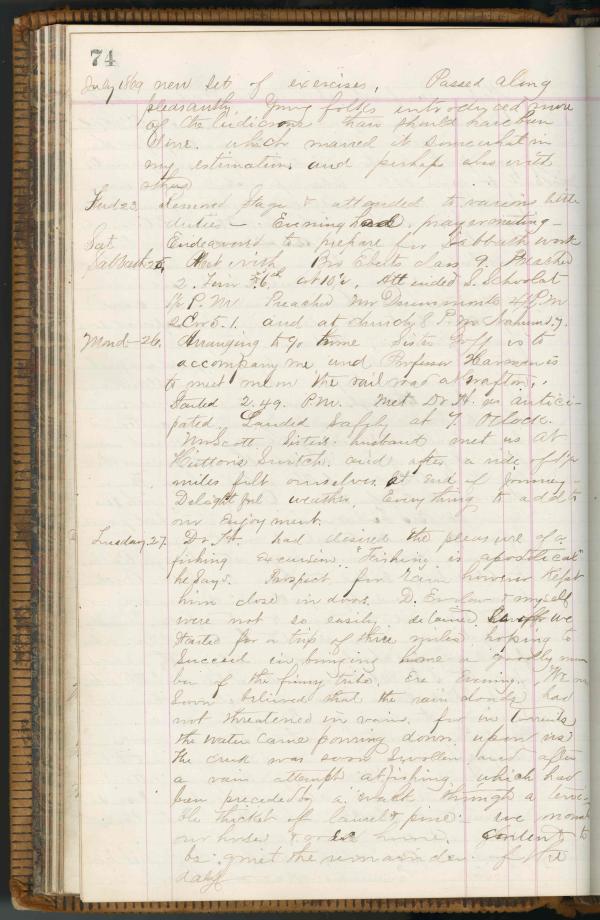 74
July 1869 new set of exercises. Passed along
pleasantly. Young folks introduced more
of the ludicrous than should have been
done. which marred it somewhat in
my estimation and perhaps also with
others
23 Removed Stage & attended to various little
duties — Evening had prayermeeting —
Sat. Endeavored to prepare for Sabbath work
Sabbath 25 Met with Bro class 9. Preached
2. Tim 3.6th at 10½. Attended S. School at
P.M. Preached Mr Drummonds 4 P.M
2 Cor 5.1. and at church 8 P.M. Nahum 1.7.
Mond - 26. Arranging to go home Sister is to
accompany me and Professor is
to meet me on the rail road at Grafton.
Started 2.49. P.M. Met Dr H. as antici-
pated. Landed Safely at 7. Oclock.
Mr Scott Sisters husband met us at
Huttons Switch and after a ride of
miles felt ourselves at end of journey -
Delightful weather. Everything to add to
our enjoyment.
Tuesday. 27. Dr. H. had desired the pleasure of a
fishing excursion. "Fishing is apostolical"
he says. Prospect for rain however kept
him close in doors. D. & myself
were not so easily detained we
started for a trip of three miles hoping to
succeed in bringing home a goodly num
ber of the finny tribe. Ere evening. We
soon believed that the rain clouds had
not threatened in vain. for in torrents
the water came pouring down upon us
the creek was soon swollen and after
a vain attempt at fishing, which had
been preceded by a walk through a terri-
ble thicket of laurel & pine — we
our horses & home. Content to
be quiet the remainder of the
day